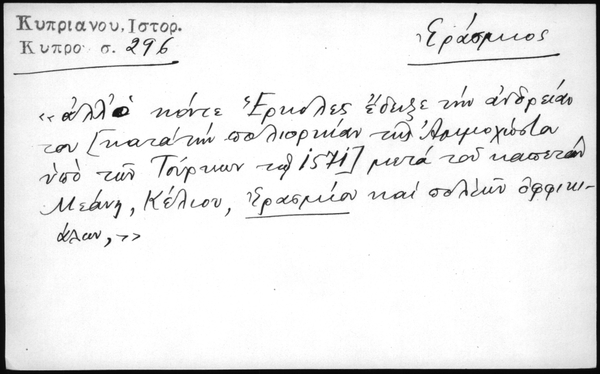 Κυπριανου, Ιστορ.
Κυπρο σ. 296
Ἐράσμιος
«ἀλλ' ὁ κόντε Ἕρκολες ἔδειξε τὴν ἀνδρείαν
του [κατὰ τὴν πολιορκίαν τῆς Ἀμμοχώστου
ὑπὸ τῶν Τούρκων τῷ 1571] μετὰ τοῦ καπετὰν
Μεάνη, Κέλιου, Ἐρασμίου καὶ πολλῶν ὀφφικι-
άλων,»